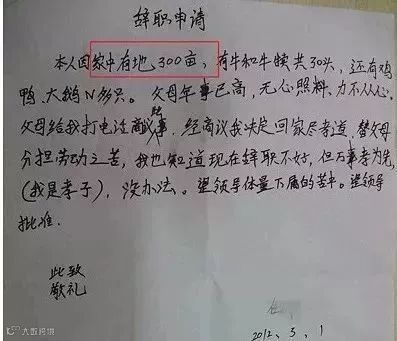 辞职申请
本人因家中有地300亩，有牛和牛犊共30头，还有鸡
鸭、大鹅N多只。父母年事已高，无心照料，力不从心。
父母给我打电话商议此事，经商议我决定回家尽孝道，替父母
分担劳动之苦，我也知道现在辞职不好，但万事孝为先，
(我是孝子)，没办法。望领导体量下属的苦中。望领导
批准.
此致
敬礼
2012、3、1
大数跨境